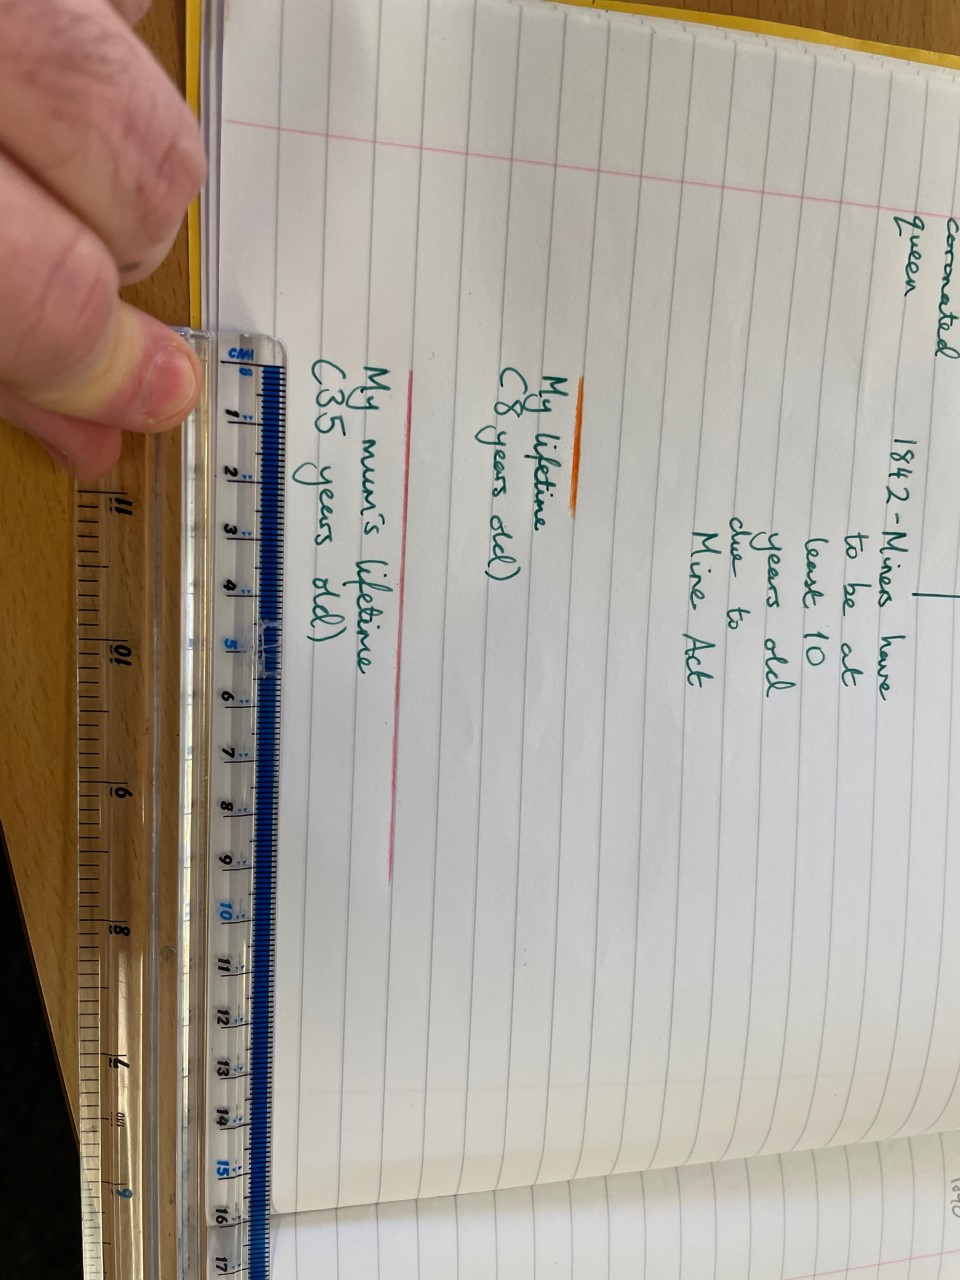 coronated
queen
1842 - Miners have
to be at
least 10
years old
due to
Mine Act
My lifetime
(8 years old)
My mum's lifetime
(35 years old)
CM 0 1 2 3 4 5 6 7 8 9 10 11 12 13 14 15 16 17
11 10 9 8 7 6